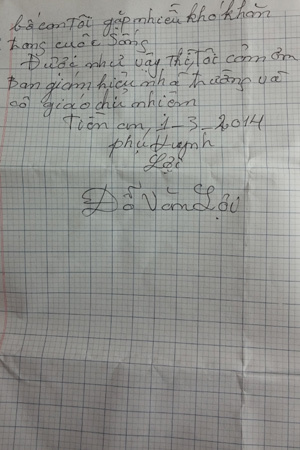 bố con Tôi gặp nhiều khó khăn
trong cuộc sống
Được như vậy thì Tôi cảm ơn
Ban giám hiệu nhà trường và
cô giáo chủ nhiệm
Tiên an, 1-3-2014
phụ Huynh
Lợi
Đỗ Văn Lợi